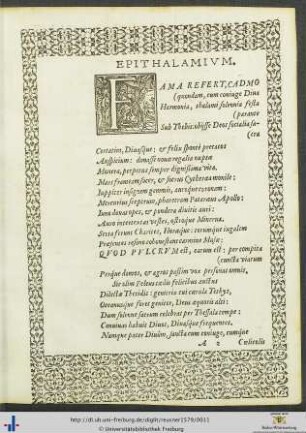 EPITHALAMIVM.
FAMA REFERT, CADMO
(quondam, cum coniuge Diua
Harmonia, thalami solennia festa
(parante
Sub Thebis abijsse Deos socialia sa-
(cra
Certatim, Diuasque: & felix sponte precatos
Auspicium: donasse nouæ regalia nuptæ
Munera, perpetuo semper dignissima vita.
Mars frameam fuerat, & suerat Cytherea monile:
Iuppiter insignem gemmis, auroque coronam:
Mercurius sceptrum, pharetram Pataræus Apollo:
Iuno dona opes, & pondera diuitis auri:
Aurea intextas vestes, ostroque Minerua.
Serta ferunt Charites, Horæque: rorumque iugalem
Præsentes resono cohonestant carmine Musæ:
QVOD PVLCRVM est, carum est: per compita
(cuncta viarum
Perque domos, & agros passim vox personat omnis,
Sic olim Peleus cælo felicibus auctus
Dilectæ Thetidis: genitrix cui cærula Tethys,
Oceanusque fuere genitor, Deus æquoris alti:
Dum solennè sacrum celebrat per Thessala tempe:
Conuiuas habuit Diuos, Diuasque frequentes.
Namque pater Diuûm, sancta cum coniuge, natisque
A 2 Cœlicolis
http://dl.ub.uni-freiburg.de/diglit/reusner1579/0011
© Universitätsbibliothek Freiburg
Baden-Württemberg